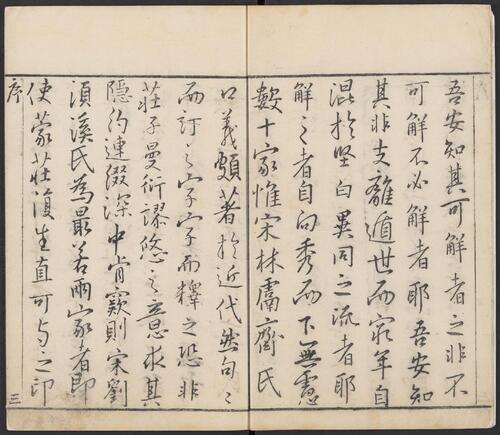 吾安知其可解者之非不
可解不必解者耶吾安知
其非支離遁世而窮年自
混於坚白異同之流者耶
解之者自向秀而下無慮
數十家惟宋林鬳齋氏
口義頗著於近代然句〻
而訂之字字而釋之恐非
莊子曼衍謬悠之意求其
隱約連綴深中肯窾則宋劉
須溪氏為最若兩家者即
使蒙莊復生直可与之印
序 三